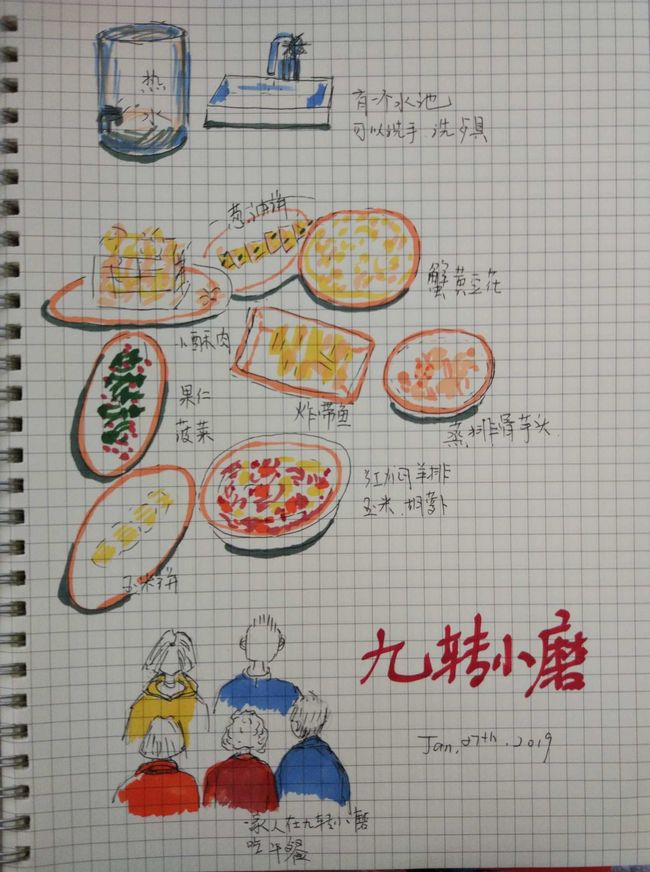 热
水
有一个水池
可以洗手、洗夕具
葱油饼
蟹黄豆花
小酥肉
果仁
菠菜
炸带鱼
蒸排骨芋头
红焖羊排
玉米.胡萝卜
玉米饼
九转小磨
Jan, 27th. 2019
家人在九转小磨
吃午餐